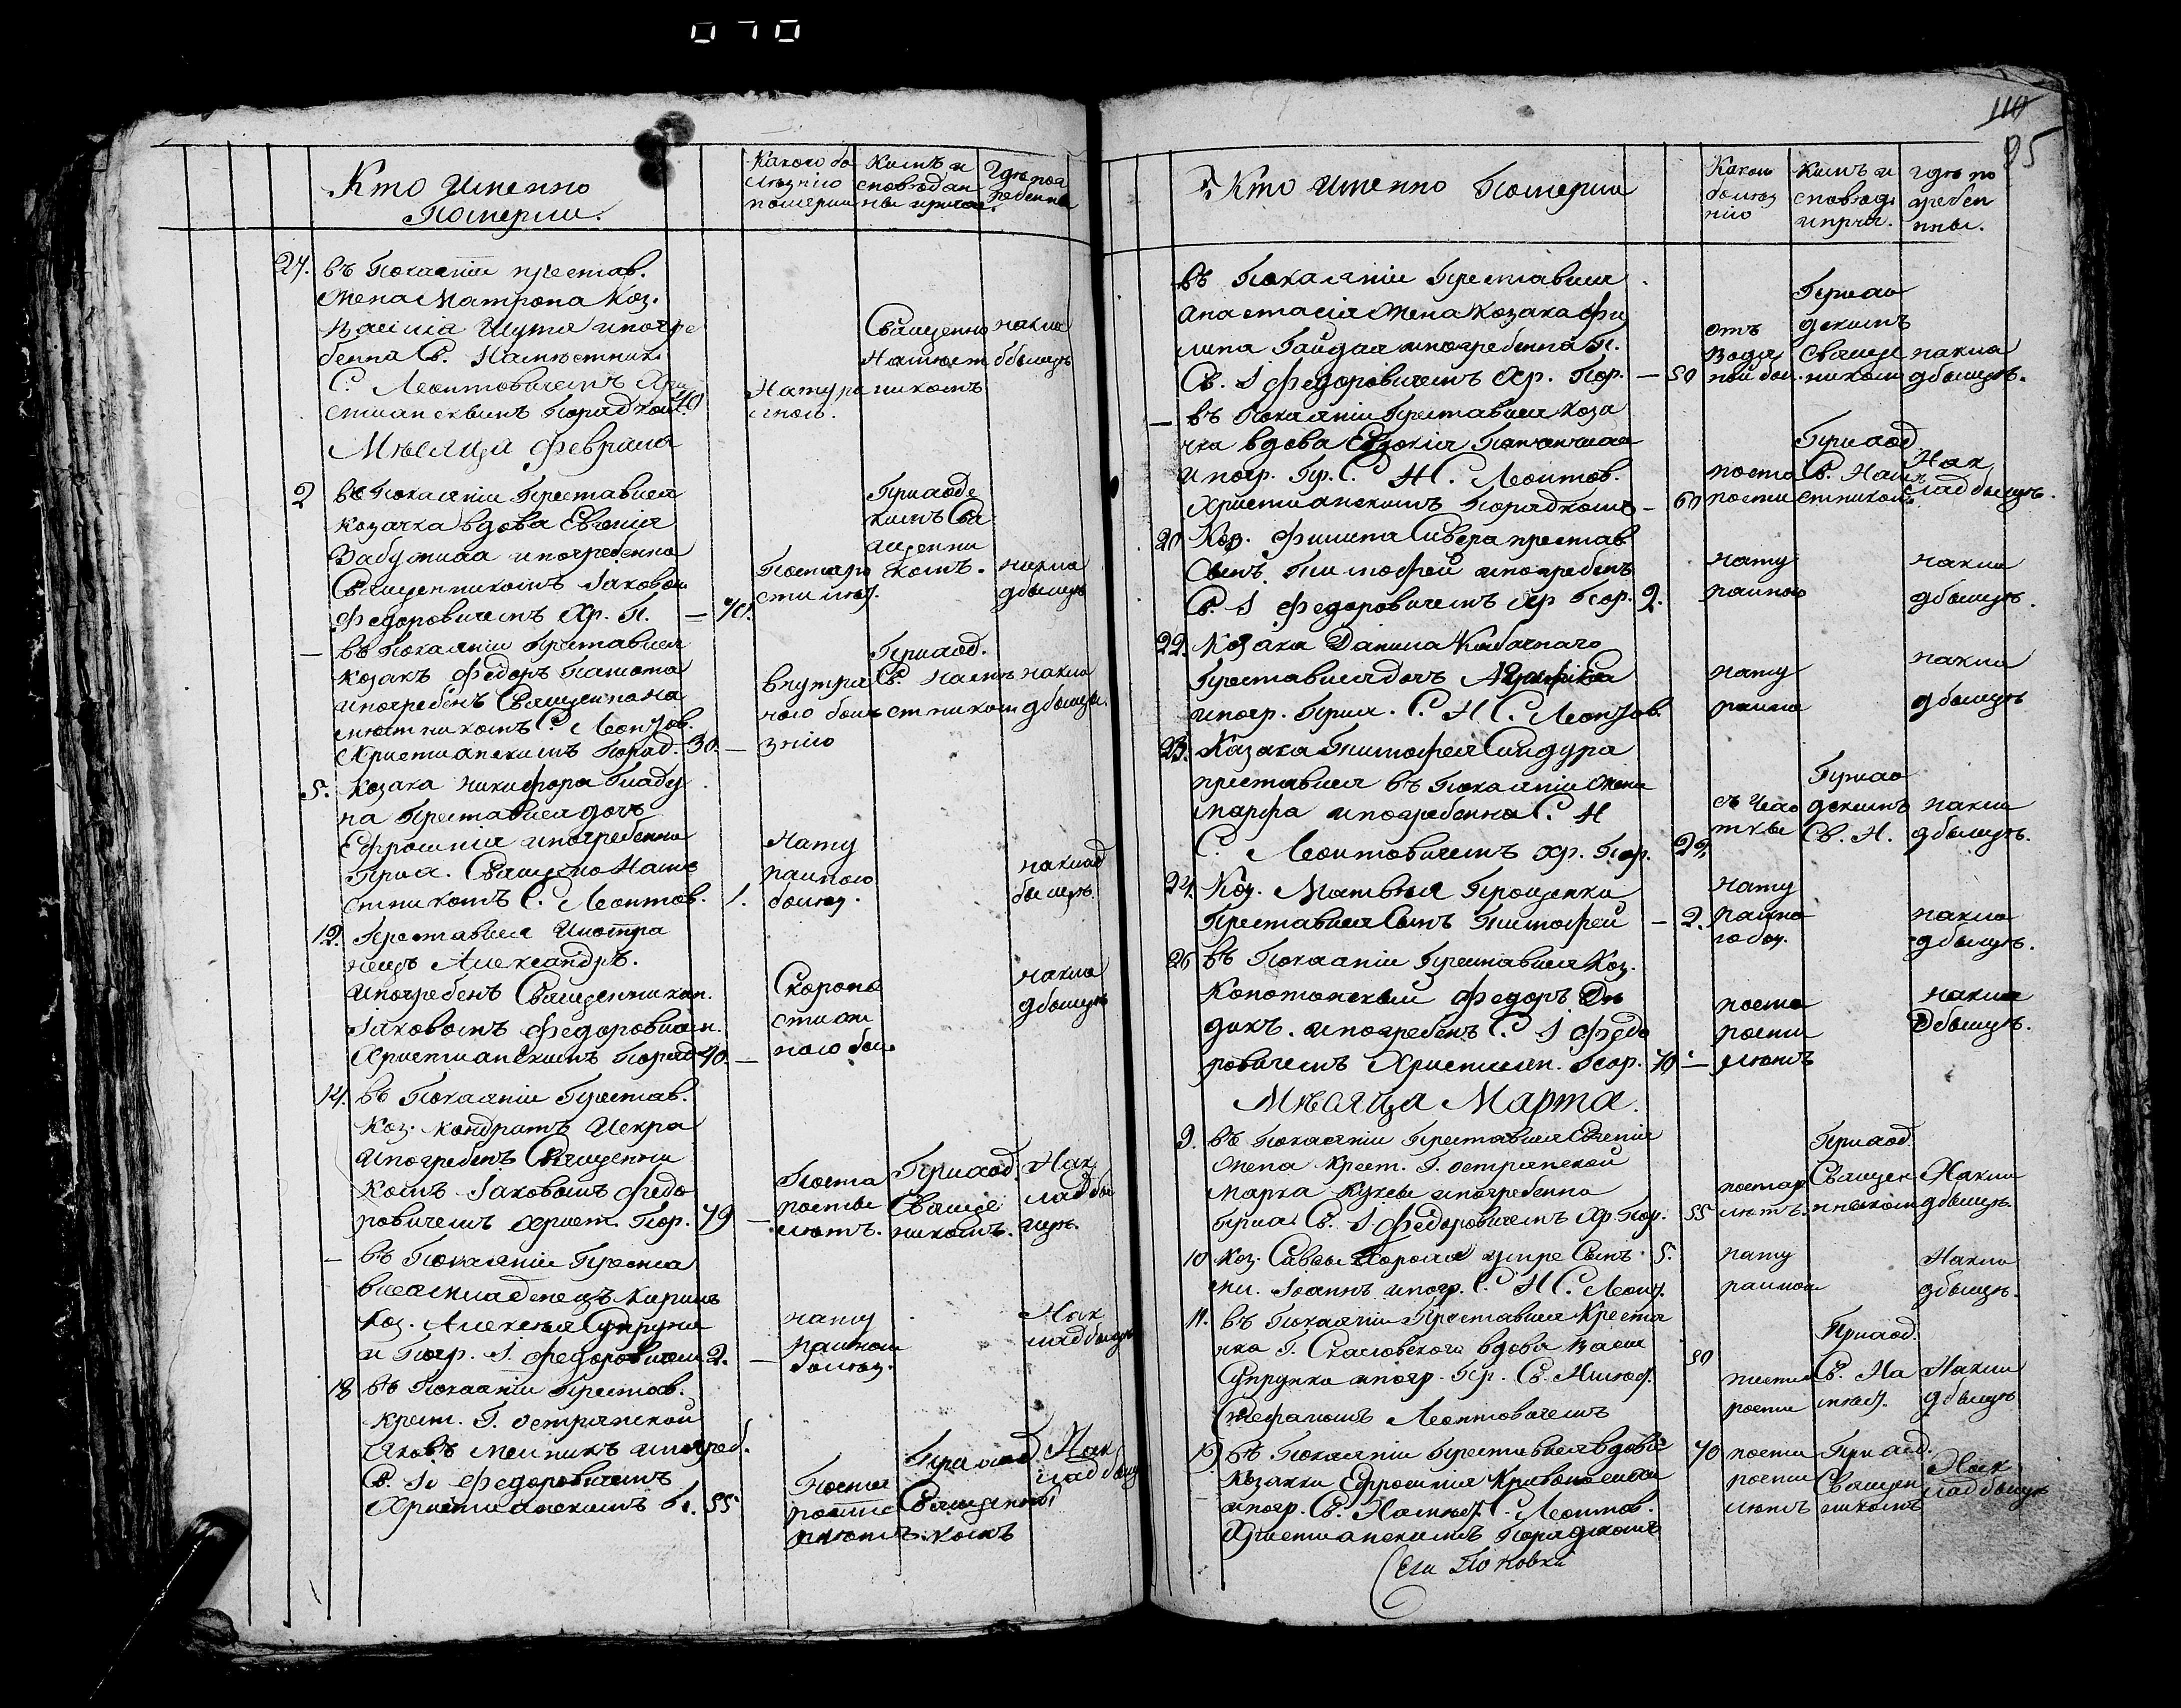 070
110
95
Кто Именно
Померли.
Какою бо
лѣзнію
померли
Кимъ и
сповѣдан
ны и прича.
Гдѣ пог
ребенны
27. въ Покаянїи престав.
Жена Матрона Коз.
Василїя Шутя и погре
бенна Св. Намѣстник.
С. Леонтовичемъ Хри
стианскимъ Порядком. 40
Натура
лною.
Священно
Намѣст
никомъ
накла
дбыщѣ
Мѣсяца Февраля
2 въ Покаянїи Преставися
козачка вдова Евгенїя
Забужная и погребенна
Священникомъ Іаковом
Федоровичемъ Хр. П. — 70.
Постаро
сти лѣт.
Приходс
кимъ Свя
щенни
комъ.
накла
дбыщѣ
— въ Покаянїи Преставися
козакъ Федоръ Пашота
и погребенъ Священнона
мѣстникомъ С. Леонтов.
Христианскимъ Поряд. 30. —
внутре
ною болѣ
знію
Приход.
Св. Намѣ
стником
накла
дбыщѣ.
5. Козака Никифора Гладу
на Преставися дочь
Ефросинїя и погребенна
Прих. Священо Намѣ
стникомъ С. Леонтов. 1.
нату
ралною
болѣз.
наклад
быщѣ.
12. Преставися Иностра
нецъ Александръ.
и погребенъ Священником.
Іаковомъ Федоровичем.
Христианскимъ Поряд 40. —
Скоропо
стиж
ною бол.
накла
дбыщѣ
14. въ Покаянїи Престав.
Коз. Кондратъ Искра
и погребенъ Священни
комъ Іаковомъ Федо
ровичемъ Христ. Пор. 79 —
Поста
рости
лѣтъ.
Приход.
Священ
никомъ.
Нак
ладбы
щѣ.
— въ Покаянїи Преста
вися младенецъ Кирилъ
Коз. Алексѣя Супруна
и Погр. І. Федоровичем 2. —
нату
ралною
болѣз.
Нак
ладбыщѣ
18 въ Покаянїи Престав.
крест. Г. Остранской
Яковъ Мелникъ и погреб.
Св. Іа Федоровичемъ
Христианскимъ П. 55
Поста
рости
лѣтъ.
Приход.
Священни
комъ
Нак
ладбыщ
Кто Именно Померли
Какою
болѣз
нію
Кимъ и
сповѣд.
и прич.
Гдѣ по
гребен
нны.
въ Покаянїи Преставися
Анастасїя Жена козака Фи
липа Гайдая и погребенна П.
Св. І Федоровичемъ Хр. Пор. — 50
отъ
Водя
ной бол.
Прихо
дскимъ
Священ
ником
накла
дбыщѣ.
— въ Покаянїи Преставися коза
чка вдова Евдокїя
и погр. Пр. С. Н. С. Леонтов.
Христианскимъ Порядкомъ — 60
поста
рости
Приход
Св. Намѣ
стником
Нак
ладбыщѣ.
20 Коз. Филипа Сивера престав.
Сынъ Тимофей и погребенъ
Св. І Федоровичемъ Хр Пор. 2.
нату
ралною
накла
дбыщѣ.
22. Козака Данила Кибалнаго
Преставися дочь
и погр. Прих. С. Н С. Леонтов.
нату
рално
накла
дбыщѣ
23. Козака Тимофея Синдура
преставися въ Покаянїи Жена
Марфа и погребенна С. Н
С. Леонтовичемъ Хр. Пор. 27.
съ чахо
тки
Прихо
дскимъ
Св. Н.
накла
дбыщѣ.
24. Коз. Матвѣя Прощенка
Преставися Сынъ Тимофей — 2.
нату
рално
го бол.
накла
дбыщѣ.
26 въ Покаянїи Преставися Коз.
Конотопскый Федоръ Дѣ
дикъ. и погребенъ С І Федо
ровичемъ Христиан. Пор. 70 —
поста
рости
лѣтъ
накла
дбыщѣ.
Мѣсяца Марта.
9. въ Покаянїи Преставися Евгенїя
Жена крест. Г. Остранской
Марка Куксы и погребенна
Прих. Св. І Федоровичемъ Хр. Пор. 55
постар
лѣтъ.
Приход
Священ
ником
Накла
дбыщѣ.
10 Коз. Савы Хороля умре Сынъ 5.
Іоаннъ и погр. С. Н С. Леонт.
нату
ралною
Накла
дбыщѣ.
11. въ Покаянїи Преставися Крестя
нка Г. Скаловского вдова Васи
Супрунка и погр. Пр. Св. Намѣс. 80
Стефаномъ Леонтовичемъ
поста
рости
Приход.
Св. На
мѣст.
Накла
дбыщѣ
19 въ Покаянїи Преставися вдова 70
козачки Ефросинїя Кривоно
и погр. Св. Намѣс. С. Леонтов.
Христианскимъ Порядкомъ
поста
рости
лѣтъ
Приход.
Священ
никомъ
Нак
ладбыщѣ
Села Поповки